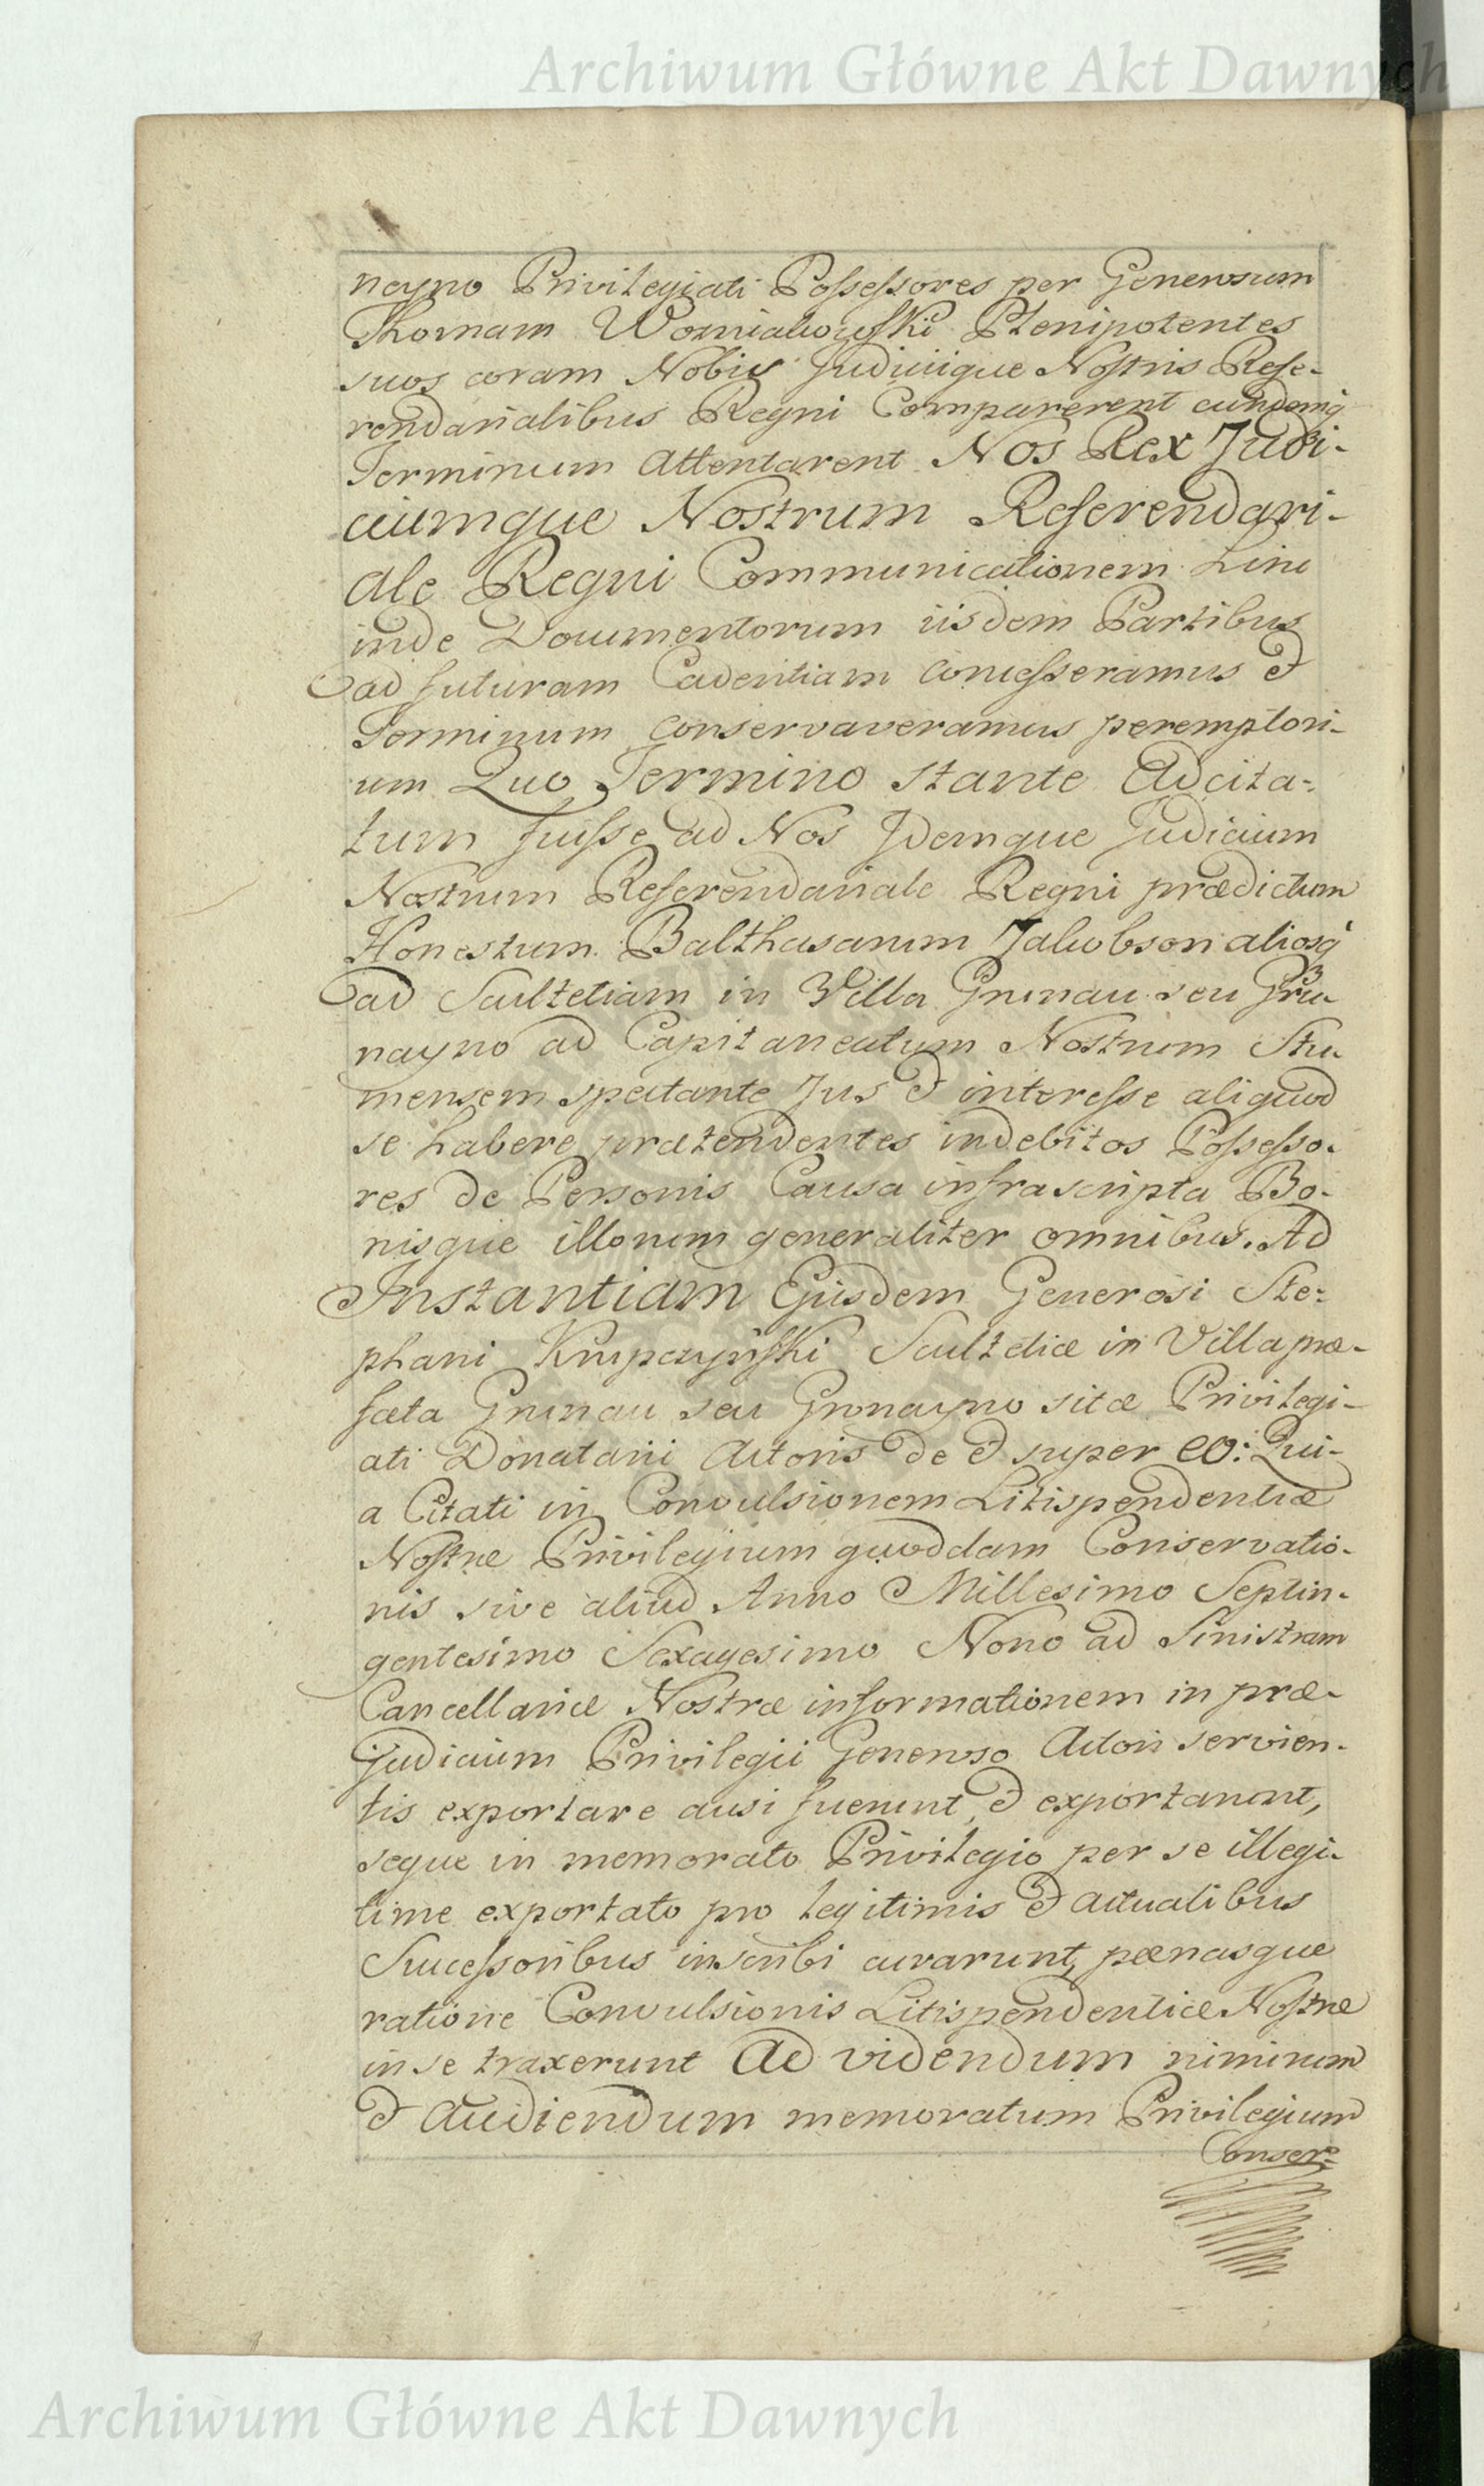 Archiwum Główne Akt Dawnych
nayno Privilegiati Possessores per Generosum
Thomam Wozniakowski Plenipotentes
suos coram Nobis Judiciique Nostris Refe-
rendarialibus Regni Comparerent eundemq
Terminum attentarent Nos Rex Judi-
ciumque Nostrum Referendari-
ale Regni Communicationem hinc
inde Documentorum iisdem Partibus
ad futuram Cadentiam concesseramus &
Terminum conservaveramus peremptori-
um Quo Termino stante Adcita-
tum fuisse ad Nos Idemque Judicium
Nostrum Referendariale Regni prædictum
Honestum Balthasarum Jakobson aliosq
ad Scultetiam in Villa Grunau seu Gru-
nayno ad Capitaneatum Nostrum Stu-
mensem spectante Jus & interesse aliquod
se habere prætendentes indebitos Possesso-
res de Personis Causa infrascripta Bo-
nisque illorum generaliter omnibus. Ad
Instantiam Ejusdem Generosi Ste-
phani Krupczyński Scultetiæ in Villa præ-
fata Grunau seu Gronayno sitæ Privilegi-
ati Donatarii Actoris de & super eo: Qui-
a Citati in Convulsionem Litispendentiæ
Nostræ Privilegium quoddam Conservatio-
nis sive aliud Anno Millesimo Septin-
gentesimo Sexagesimo Nono ad Sinistram
Cancellariæ Nostræ informationem in præ-
judicium Privilegii Generoso Actori servien-
tis exportare ausi fuerunt, & exportarunt,
seque in memorato Privilegio per se illegi-
time exportato pro legitimis & actualibus
Successoribus inscribi curarunt, pœnasque
ratione Convulsionis Litispendentiæ Nostræ
in se traxerunt Ad videndum nimirum
& audiendum memoratum Privilegium
Conser-
Archiwum Główne Akt Dawnych